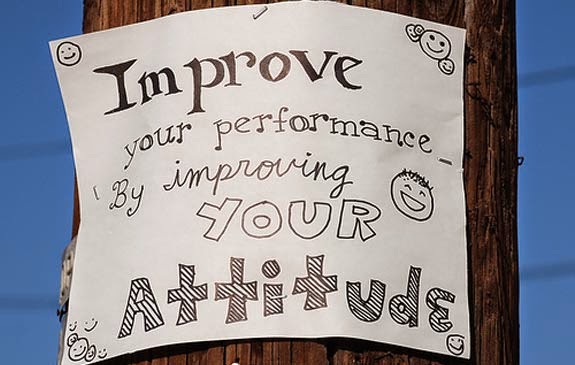 Improve
your performance
By improving
YOUR
Attitude